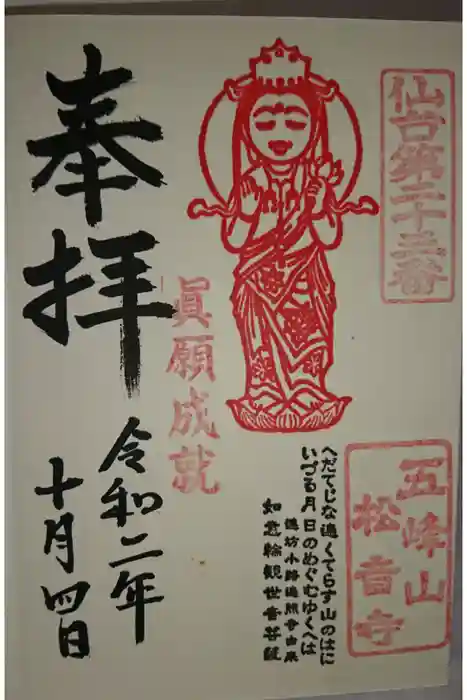 仙台第二十三番
五峰山
松音寺
へだてじな遍くてらす山のはに
いづる月日のめぐむゆくへは
徳坊小路遍照寺由来
如意輪観世音菩薩
眞願成就
奉拝
令和二年
十月四日